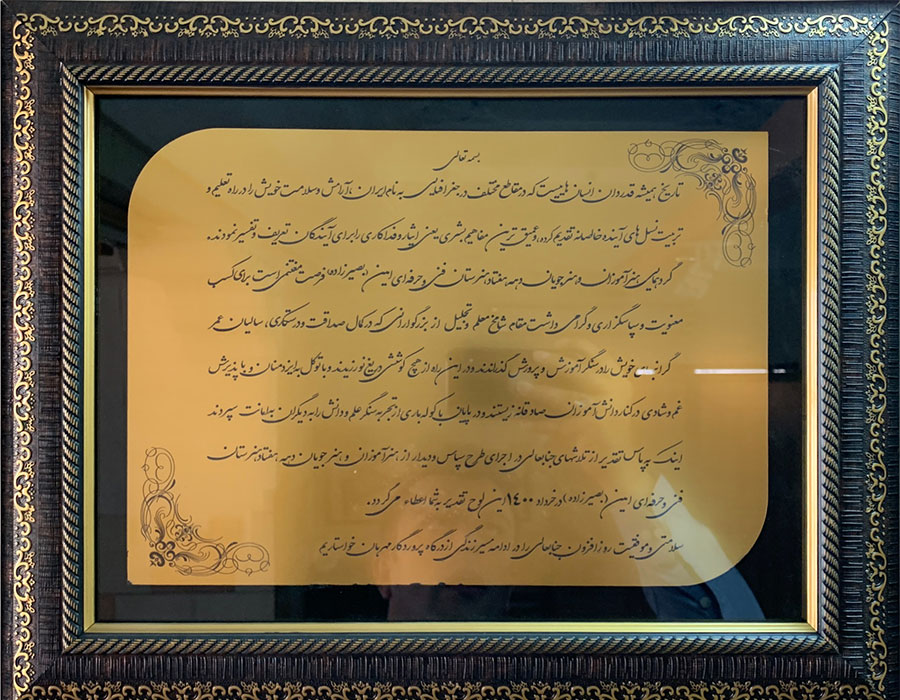 بسمه تعالی
تاریخ همیشه قدردان انسان هاییست که در مقاطع مختلف در جغرافیایی به نام ایران، آرامش و سلامت خویش را در راه تعلیم و
تربیت نسل های آینده خالصانه تقدیم کرده، و عمیق ترین مفاهیم بشری یعنی ایثار و فداکاری را برای آیندگان تعریف و تفسیر نمودند.
گردهمایی هنرآموزان و هنرجویان دهه هفتاد هنرستان فنی و حرفه ای امین (بصیرزاده) فرصت مغتنمی است برای کسب
معنویت و سپاسگزاری و گرامی داشت مقام شامخ معلم و تجلیل از بزرگوارانی که در کمال صداقت و درستکاری، سالیان عمر
گرانبهای خویش را در سنگر آموزش و پرورش گذراندند و در این راه از هیچ کوششی دریغ نورزیدند و با توکل به ایزد منان و با پذیرش
غم و شادی در کنار دانش آموزان صادقانه زیستند و در پایان با کوله باری از تجربه سنگر علم و دانش را به دیگران به امانت سپردند
اینک به پاس تقدیر از تلاشهای جنابعالی در اجرای طرح سپاس و دیدار از هنرآموزان و هنرجویان دهه هفتاد هنرستان
فنی و حرفه ای امین (بصیرزاده) در خرداد ۱۴۰۰ این لوح تقدیر به شما اعطاء می گردد.
سلامتی و موفقیت روزافزون جنابعالی را در ادامه مسیر زندگی از درگاه پروردگار مهربان خواستاریم